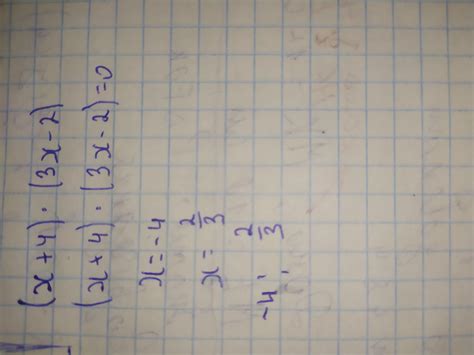 (x+4) · (3x-2)
(x+4) · (3x-2)=0
x=-4
x=2/3
-4; 2/3